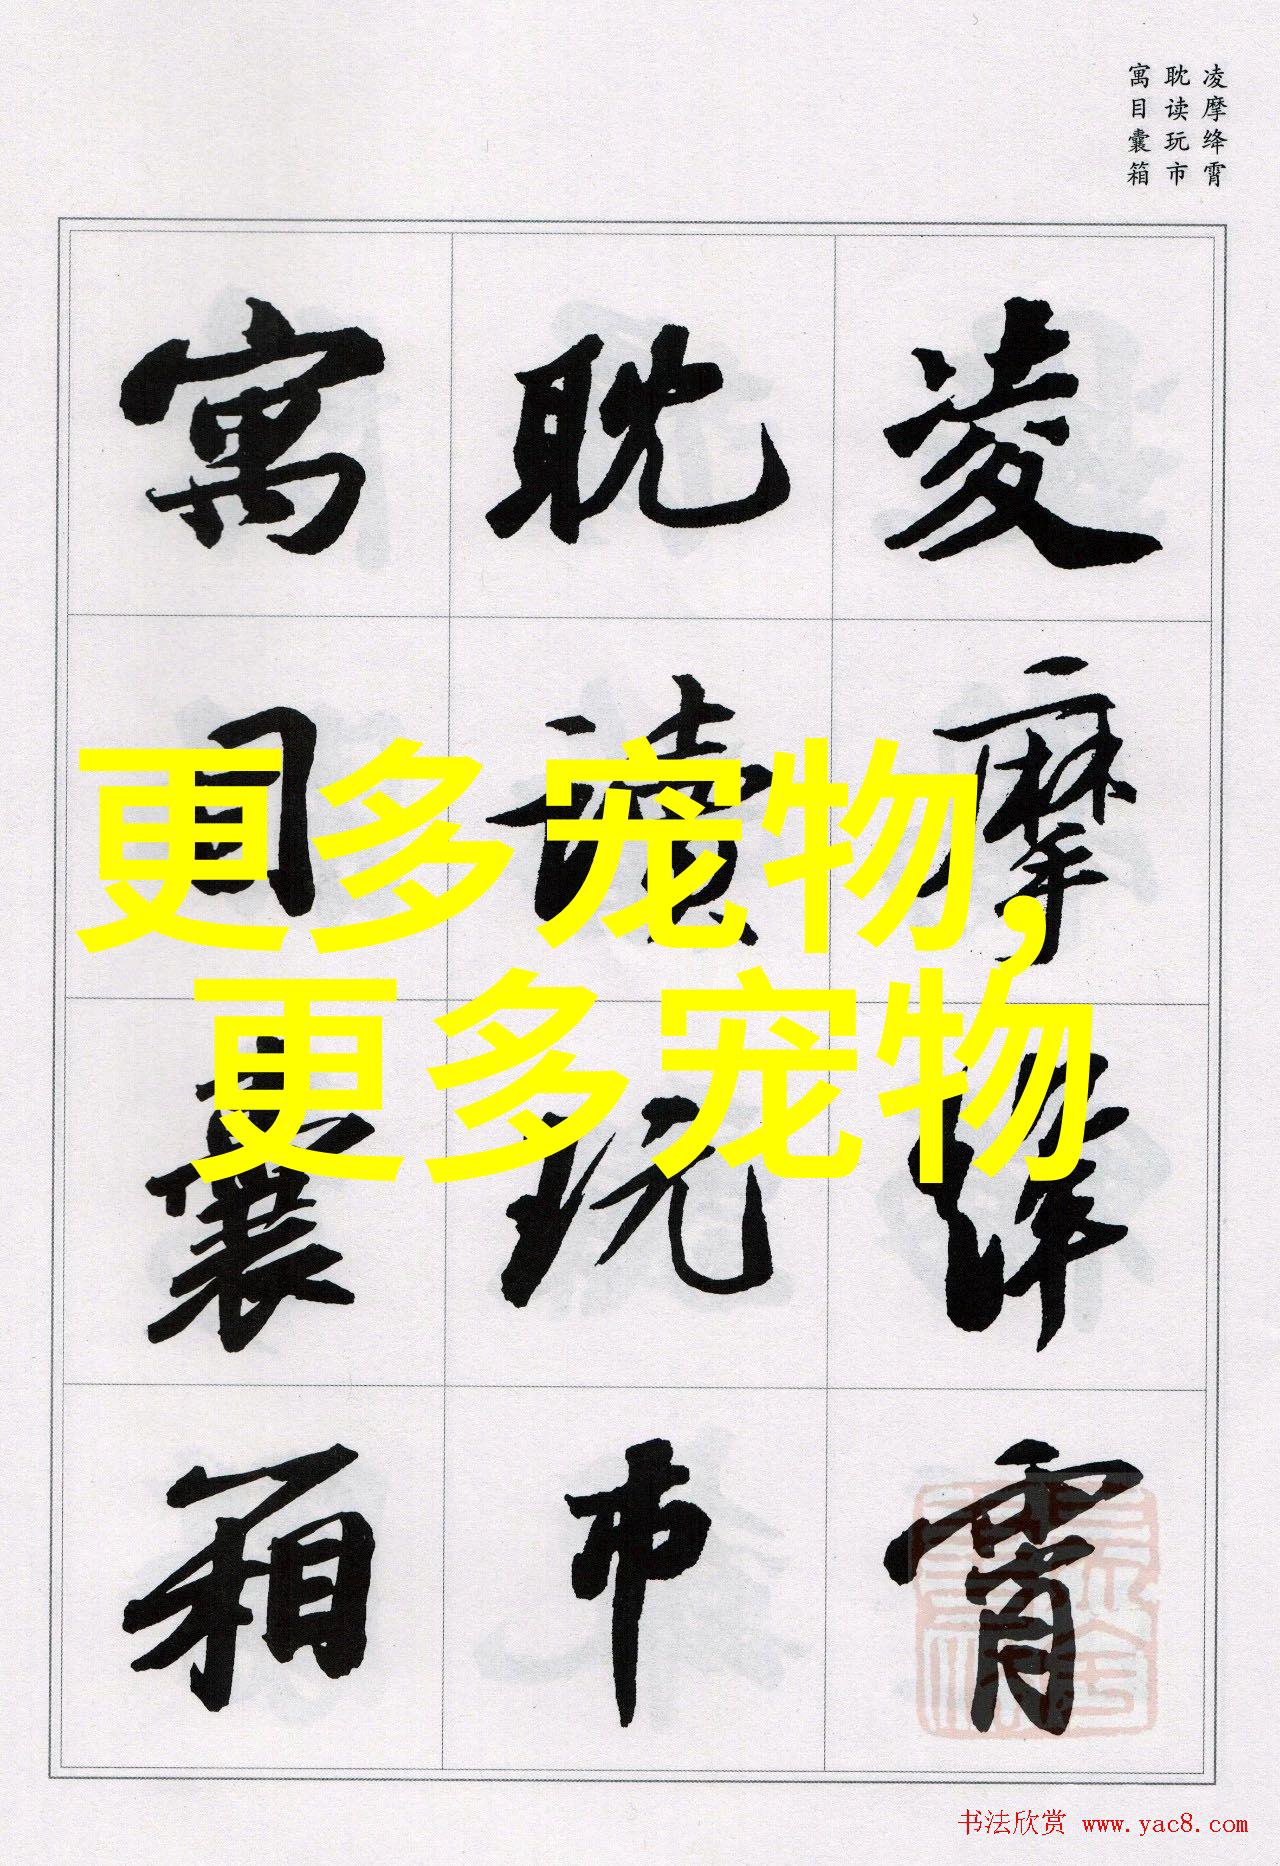 凌摩绛霄
耽读玩市
寓目囊箱
凌摩绛霄
耽读玩市
寓目囊箱
更多宠物,
更多宠物
书法欣赏 www.yac8.com